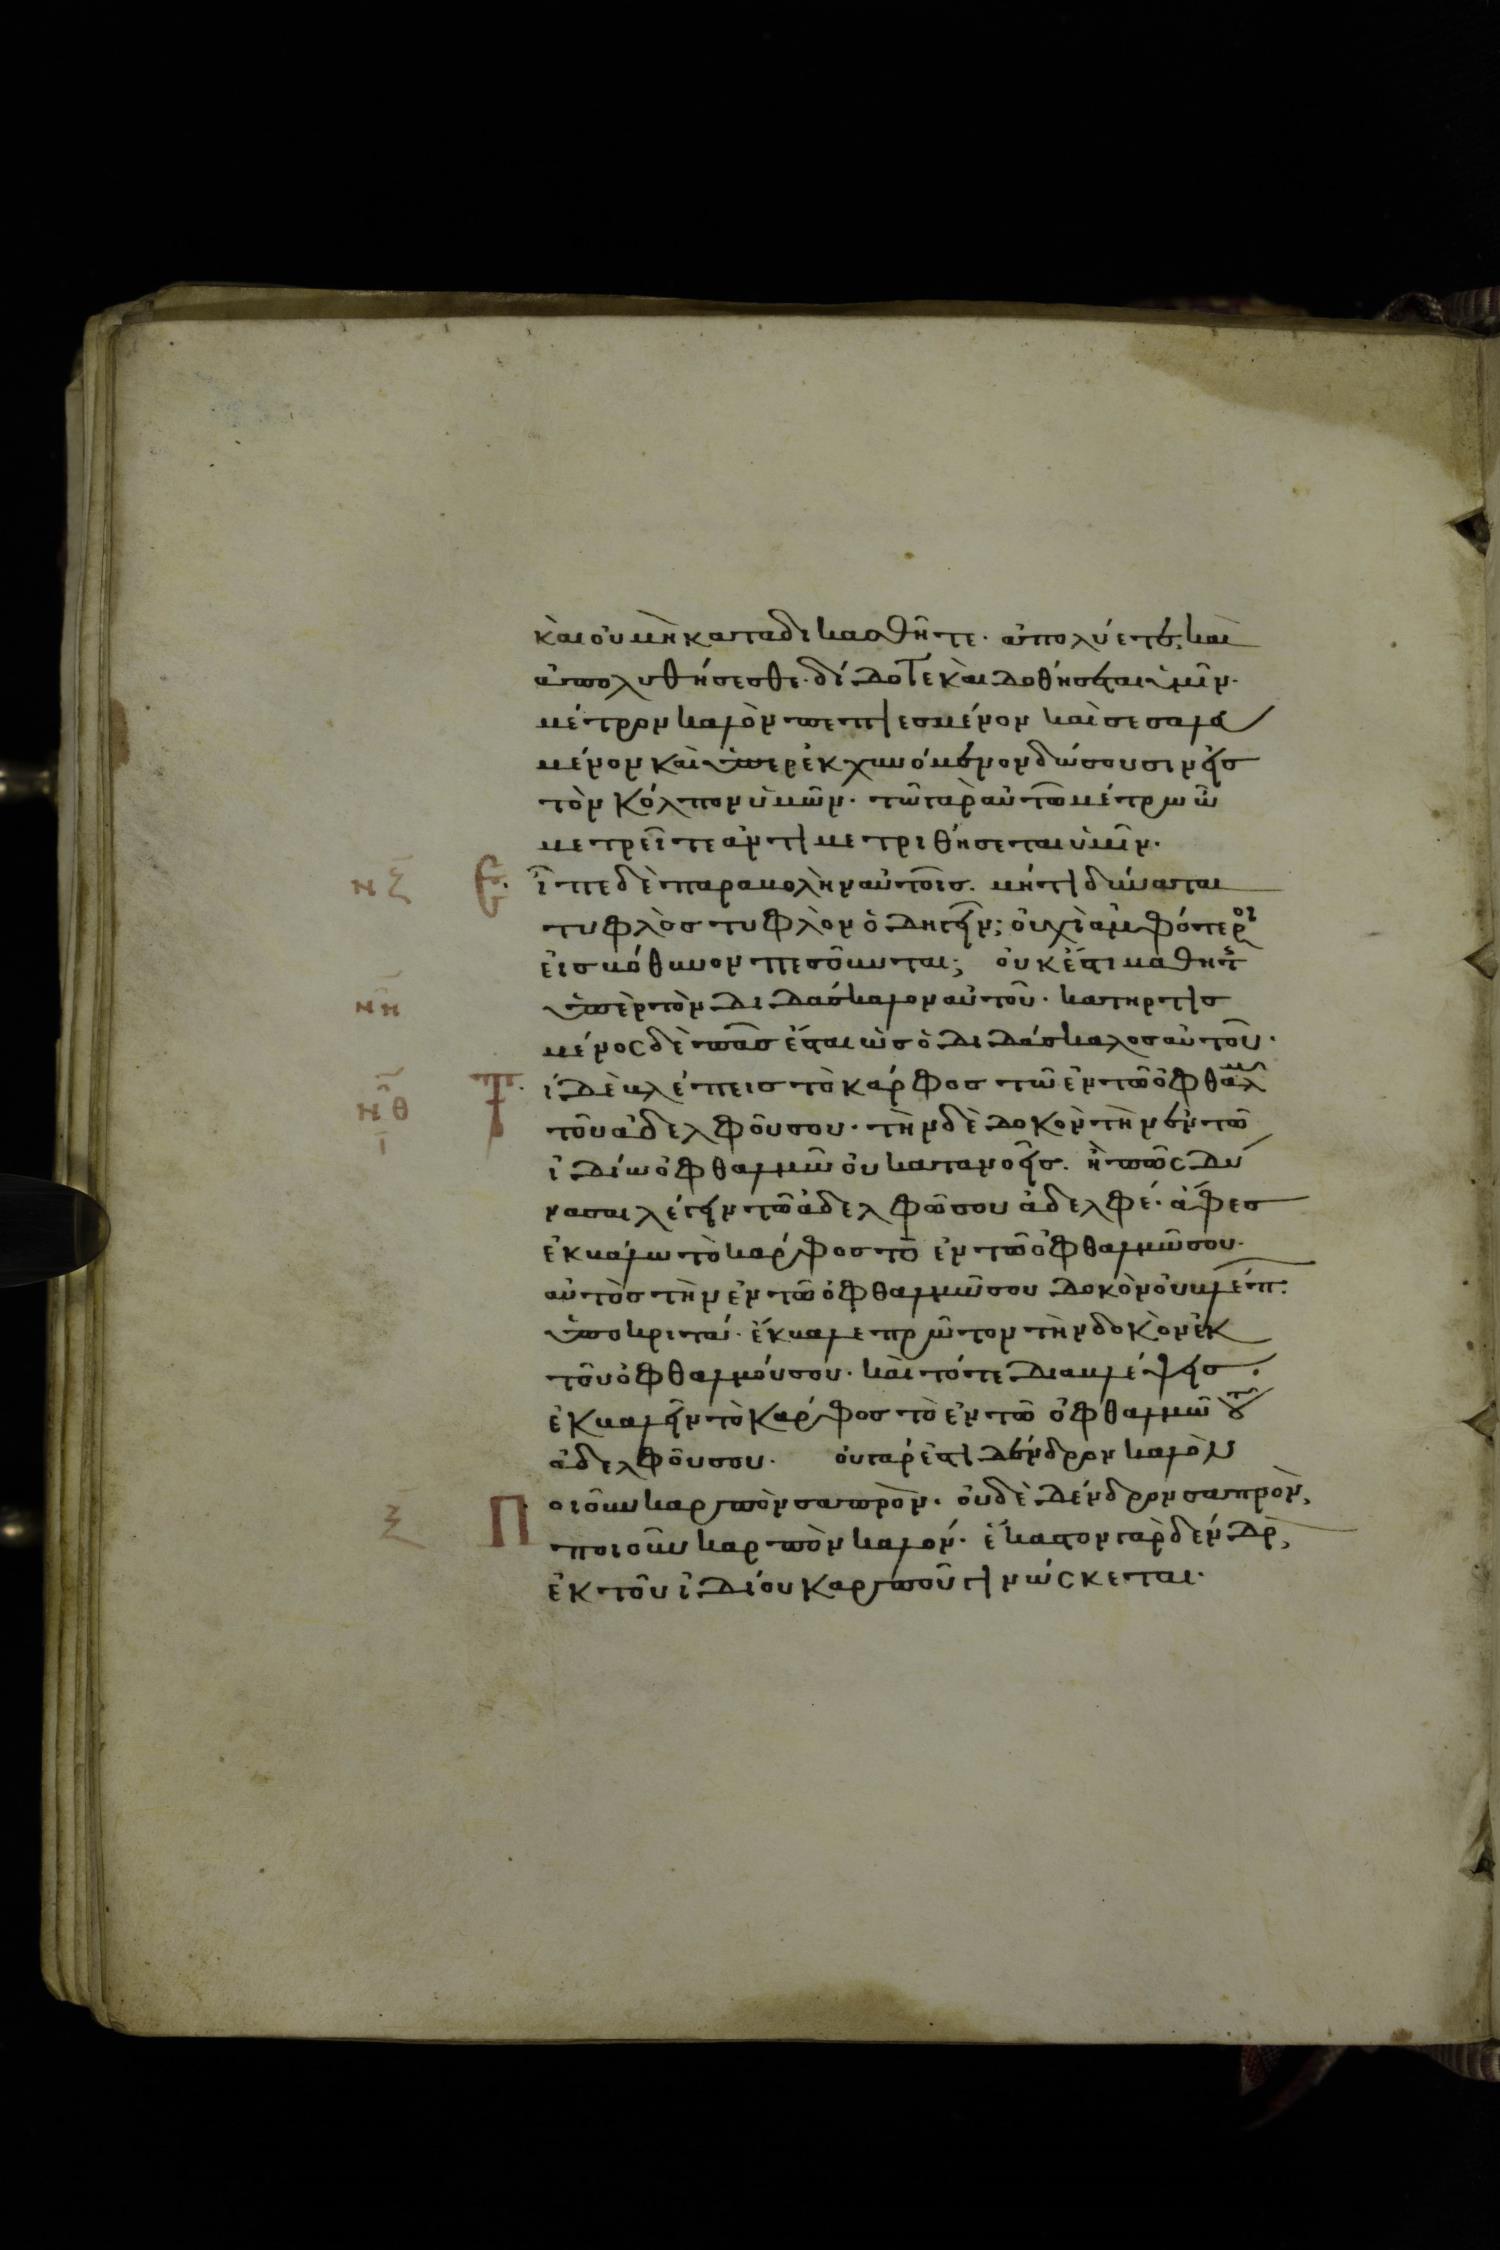 καὶ οὐ μὴ καταδικασθῆτε· ἀπολύετε, καὶ
ἀπολυθήσεσθε· δίδοτε καὶ δοθήσεται ὑμῖν·
μέτρον καλὸν πεπιεσμένον καὶ σεσαλευ
μένον καὶ ὑπερεκχυνόμενον δώσουσιν εἰς
τὸν κόλπον ὑμῶν· τῶ γὰρ αὐτῶ μέτρω ὧ
μετρεῖτε ἀντιμετρηθήσεται ὑμῖν·
νζ Εἶπε δὲ παραβολὴν αὐτοῖς· μήτι δύναται
τυφλὸς τυφλὸν ὁδηγεῖν; οὐχὶ ἀμφότεροι
εἰς βόθυνον πεσοῦνται; οὐκ ἔστι μαθητὴς
νη ὑπὲρ τὸν διδάσκαλον αὐτοῦ· κατηρτισ
μένος δὲ πᾶς ἔσται ὡς ὁ διδάσκαλος αὐτοῦ·
νθ ι Τί δὲ βλέπεις τὸ κάρφος τῶ ἐν τῶ ὀφθαλμῶ
τοῦ ἀδελφοῦ σου· τὴν δὲ δοκὸν τὴν ἐν τῶ
ἰδίω ὀφθαλμῶ οὐ κατανοεῖς· ἢ πῶς δύ
νασαι λέγειν τῶ ἀδελφῶ σου ἀδελφέ· ἄφες
ἐκβάλω τὸ κάρφος τὸ ἐν τῶ ὀφθαλμῶ σου·
αὐτὸς τὴν ἐν τῶ ὀφθαλμῶ σου δοκὸν οὐ βλέπ·
ὑποκριτά· ἔκβαλε πρῶτον τὴν δοκὸν ἐκ
τοῦ ὀφθαλμού σου· καὶ τότε διαβλέψεις·
ἐκβαλεῖν τὸ κάρφος τὸ ἐν τῶ ὀφθαλμῶ τοῦ
ἀδελφοῦ σου· οὐ γάρ ἐστι δένδρον καλὸν
ξ Ποιοῦν καρπὸν σαπρὸν· οὐδὲ δένδρον σαπρὸν,
ποιοῦν καρπὸν καλόν· ἕκαστον γὰρ δένδρ,
ἐκ τοῦ ἰδίου καρποῦ γινώσκεται·